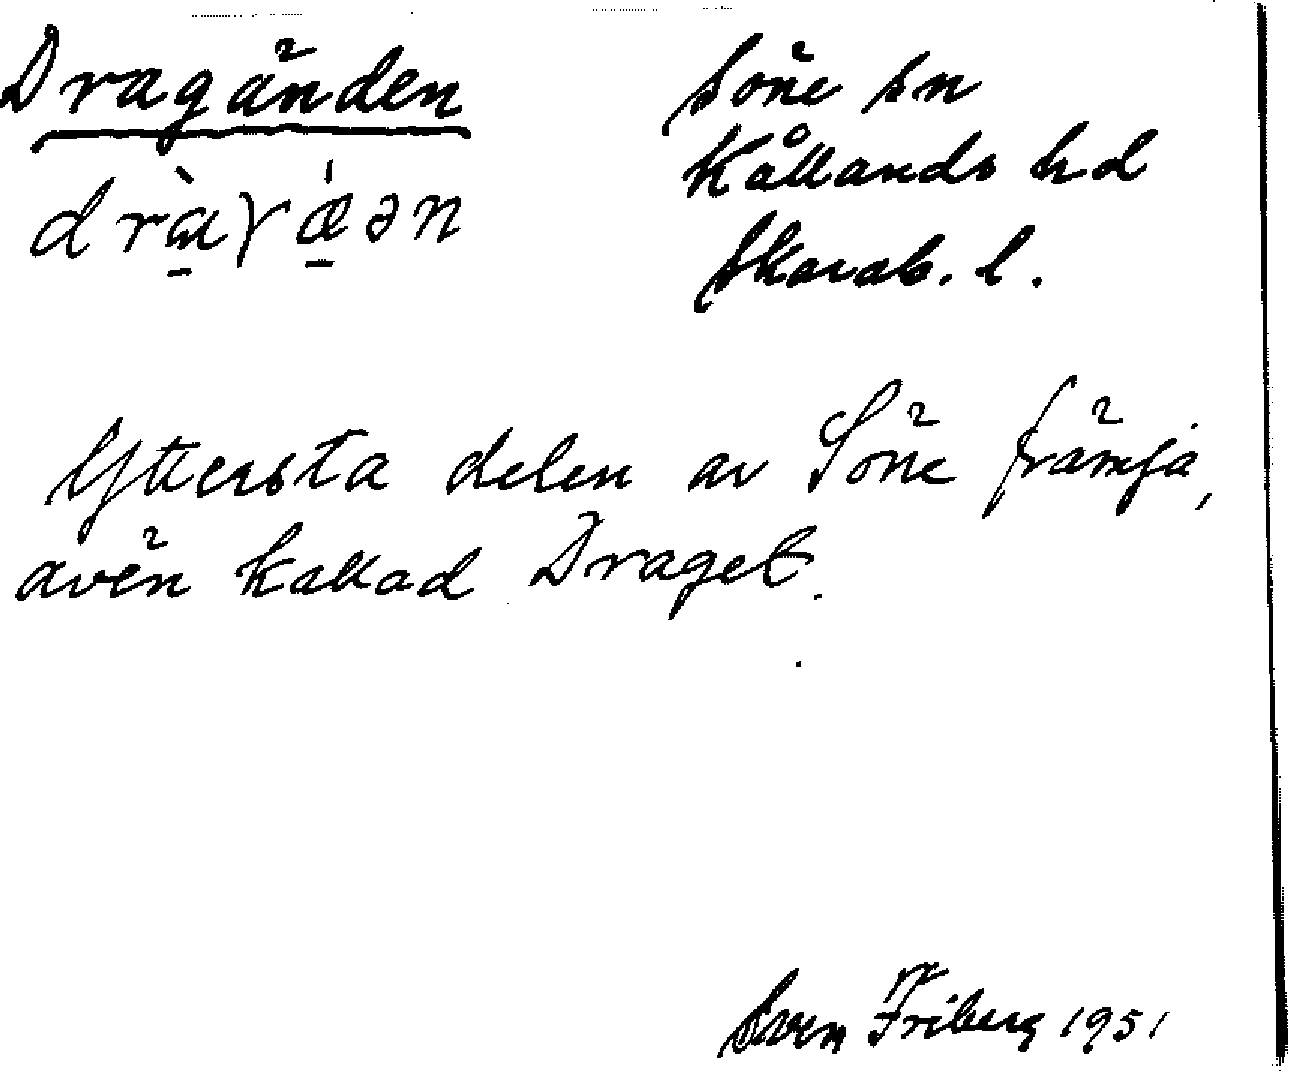 Dragänden
Söne sn
Kållands hd
Skarab. l.
Yttersta delen av Söne främja,
även kallad Draget.
Sven Friberg 1951